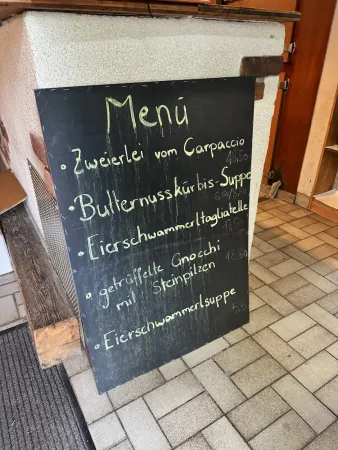 Menü
• Zweierlei vom Carpaccio
• Butternusskürbis-Suppe
• Eierschwammerltagliatelle
• getrüffelte Gnocchi
mit Steinpilzen
• Eierschwammerlsuppe